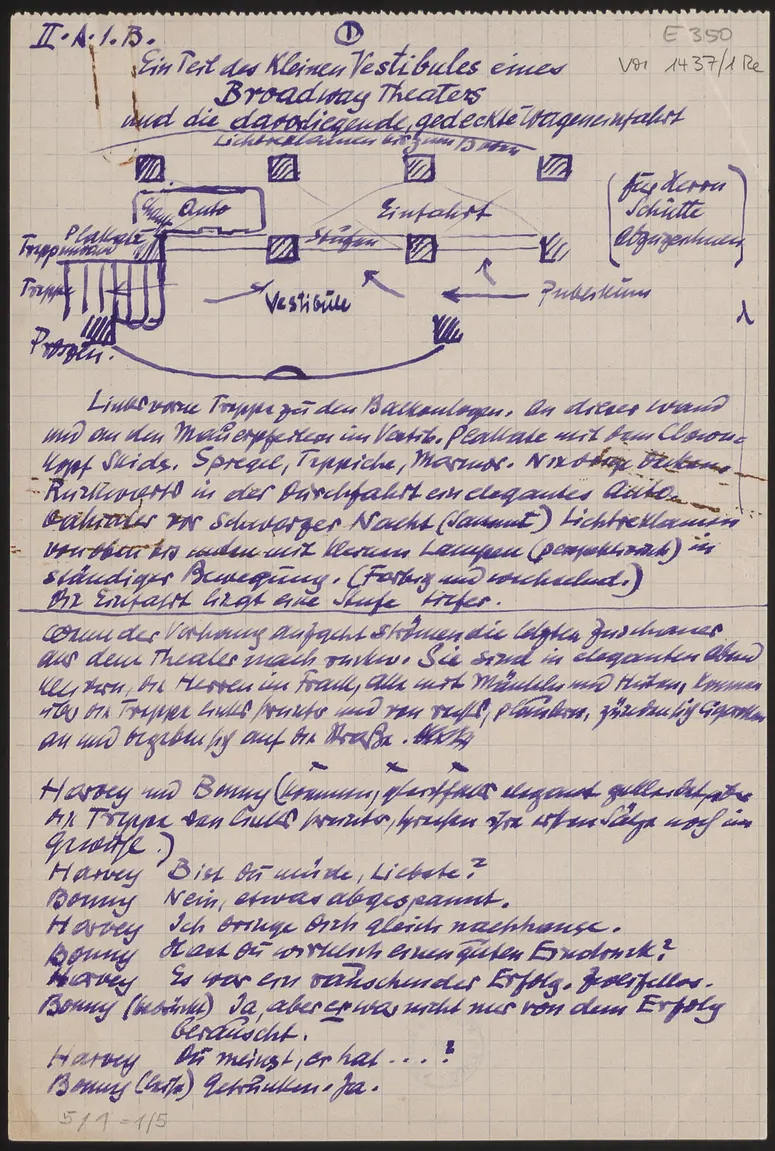 II. A. 1. B.
①
E 350
Vor 1437/1 Re
Ein Teil des Kleinen Vestibules eines
Broadway Theaters
und die davorliegende, gedeckte Wageneinfahrt
Lichtreklamen bis zum Boden
Auto
Einfahrt
(für Herrn
Schütte
abzuzeichnen)
Plakate
Stufen
Treppe
Vestibule
Publikum
Links vorne Treppe zu den Balkonlogen. An dieser Wand
und an den Mauerpfeilern im Vestib. Plakate mit dem Clown-
kopf Skids. Spiegel, Teppiche, Marmor.
Rückwärts in der Durchfahrt ein elegantes Auto.
Dahinter vor schwarzer Nacht (Sammt) Lichtreklamen
von oben bis unten mit kleinen Lampen (perspektivisch) in
ständiger Bewegung. (Farbig und wechselnd.)
Die Einfahrt liegt eine Stufe tiefer.
Wenn der Vorhang aufgeht strömen die letzten Zuschauer
aus dem Theater nach rückw. Sie sind in eleganten Abend
kleidern, die Herren im Frack, alle mit Mänteln und Hüten, kommen
über die Treppe links herunter und von rechts, plaudern, zünden sich Cigaretten
an und begeben sich auf die Straße.
Harvey und Bonny (kommen, gleichfalls elegant gekleidet, über
die Treppe von links herunter, sprechen ihre ersten Sätze noch im
Gewoge.)
Harvey Bist Du müde, Liebste?
Bonny Nein, etwas abgespannt.
Harvey Ich bringe Dich gleich nachhause.
Bonny Hast Du wirklich einen guten Eindruck?
Harvey Es war ein rauschender Erfolg. Zweifellos.
Bonny (bedrückt) Ja, aber er war nicht nur von dem Erfolg
berauscht.
Harvey Du meinst, er hat . . . . ?
Bonny (leise) Getrunken. Ja.
5/1 = 1/5